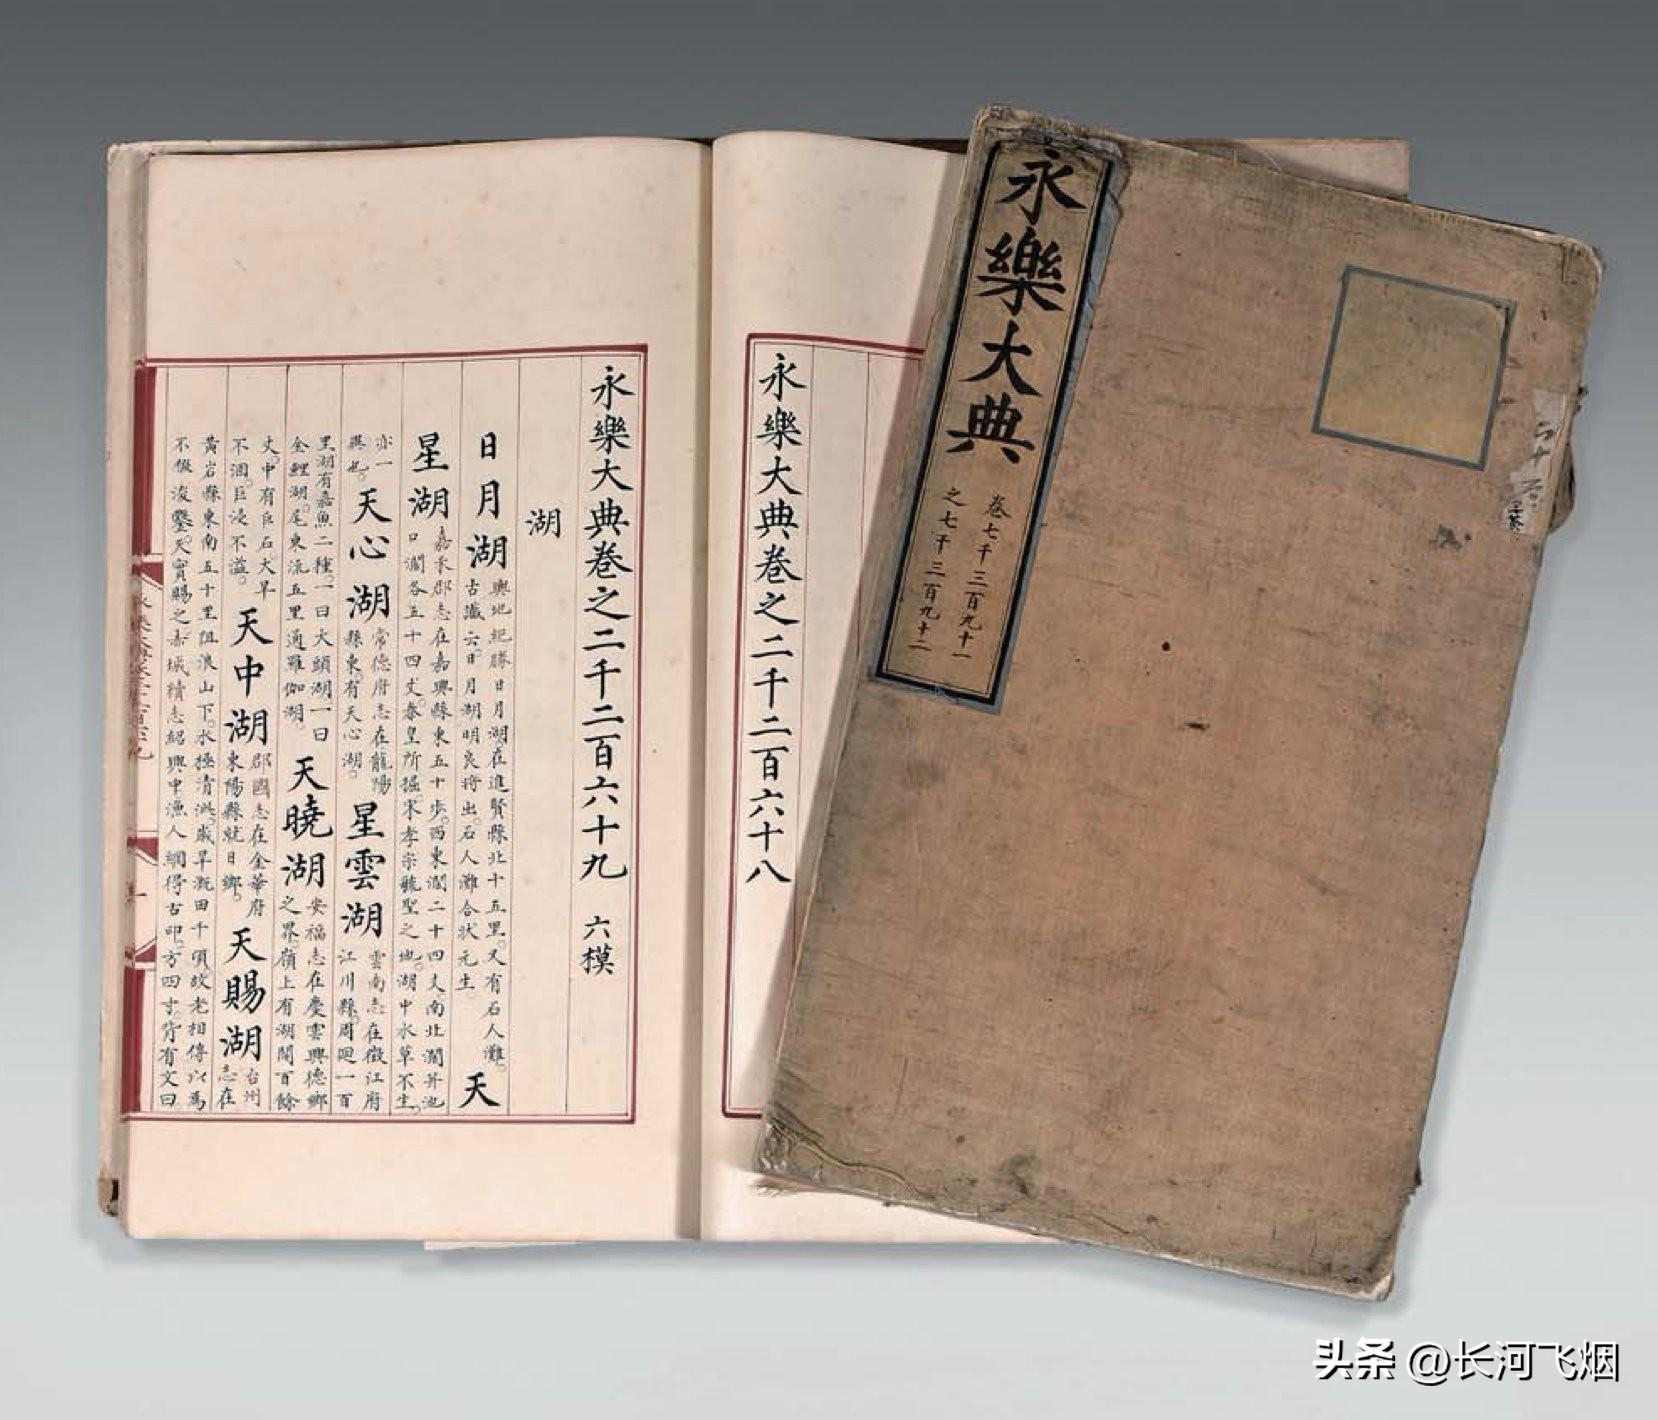 永樂大典
卷七千三百九十一
之七千三百九十二
永樂大典卷之二千二百六十八
永樂大典卷之二千二百六十九 六模
湖
日月湖 輿地紀勝日月湖在進賢縣北十五里。又有石人灘。
古讖云。日月湖明良將出。石人灘合狀元生 天
星湖 嘉禾郡志在嘉興縣東五十步。西東濶二十四丈南北濶并池
口濶各五十四丈。秦皇所掘宋孝宗毓聖之地。湖中水草不生。
亦一
異也。
天心湖 常德府志在龍陽
縣東。有天心湖。
星雲湖 雲南志在澂江府
江川縣。周迴一百
里湖有嘉魚二種。一曰大頭湖一曰
金鯉湖。尾東流五里通羅伽湖。
天曉湖 安福志在慶雲興德鄉
之界。嶺上有湖闊百餘
丈。中有巨石大旱
不涸。巨浸不溢。
天中湖 郡國志在金華府
東陽縣就日鄉。
天賜湖 台州
志在
黃岩縣東南五十里阻浪山下。水極清洌。歲旱溉田千頃。故老相傳以為
不假浚鑿。天實賜之。赤城續志紹興中漁人網得古印。方四寸。背有文曰
头条 @长河飞烟